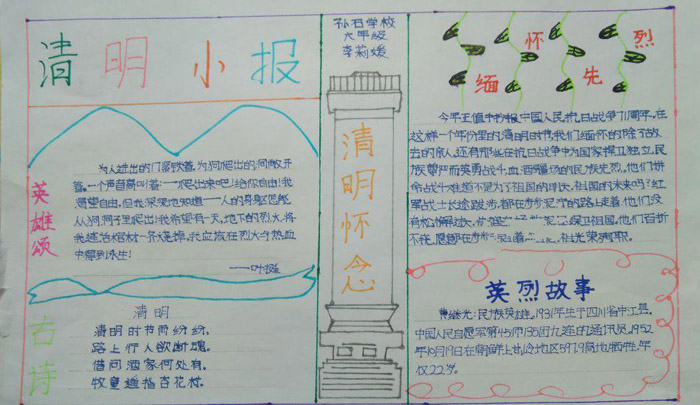 清明小报
孙石学校
六年级
李莉媛
缅怀先烈
英雄颂
为人进出的门紧锁着，为狗爬出的洞敞开
着，一个声音高叫着：一爬出来吧！给你自由！我
渴望自由，但我深深地知道——人的身躯怎能
从狗洞子里爬出！我希望有一天，地下的烈火，将
我连活棺材一齐烧掉，我应该在烈火与热血
中得到永生！
——叶挺
古诗
清明
清明时节雨纷纷，
路上行人欲断魂。
借问酒家何处有，
牧童遥指杏花村。
清明怀念
今年正值中国人民抗日战争71周年，在
这样一个年份里的清明时节，我们缅怀的除了故
去的亲人，还有那些在抗日战争中为国家捍卫独立，民
族尊严而英勇战斗，血洒疆场的民族先烈。他们拼
命战斗难道不是为了祖国的
军战士长途跋涉，都在步步泥泞的路上走着，他们没
有
祖国。他们百折
不挠，
英烈故事
黄继光：民族英雄。1931年生于四川省中江县，
中国人民自愿军第45师135团九连的通讯员。1952
年10月19日在朝鲜上甘岭地区597.9高地牺牲，年
仅22岁。